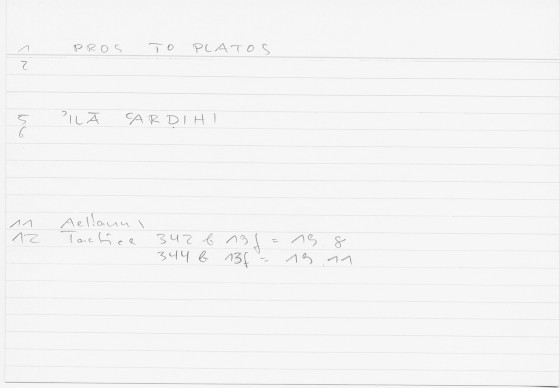 1 PROS TO PLATOS
2
5 ʿILĀ ʿARḌIHI
6
11 Aelianus
12 Tactica 342 b 13f = 19 8
344 b 13f = 19 11